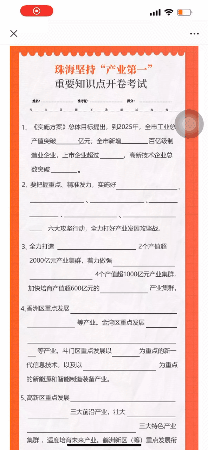 珠海坚持“产业第一”
重要知识点开卷考试
1、《实施方案》总体目标提出，到2025年，全市工业总
产值突破______亿元，全市新增______百亿级制
造业企业，上市企业超过______，高新技术企业总
数突破______。
2、要把握重点、精准发力，实施好______、
______、______、______、
______、______六大攻坚行动，全力打好产业发展攻坚战。
3、全力打造______ 2个产值超
2000亿元产业集群，着力做强______
______ 4个产值超1000亿元产业集群，
加快培育产值超600亿元的______产业集群。
4、香洲区重点发展______
______等产业。金湾区重点发展______
______等产业。斗门区重点发展以______为重点的新一
代信息技术，以及以______为重点
的新能源和智能制造装备产业。
5、高新区重点发展______
______三大前沿产业，壮大______
______三大特色产业
集群，适度培育未来产业。鹤洲新区（筹）重点发展衔